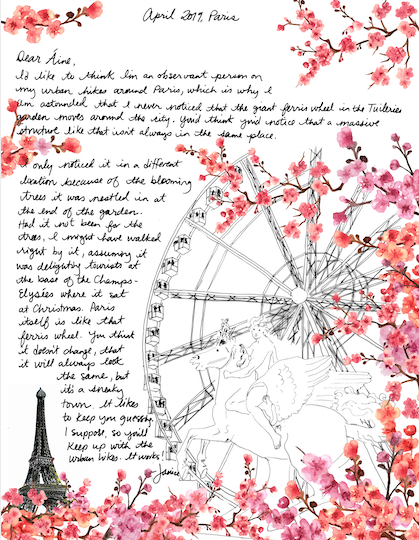 April 2019, Paris
Dear Áine,
I'd like to think I'm an observant person on
my urban hikes around Paris, which is why I
am astounded that I never noticed that the giant ferris wheel in the Tuileries
garden moves around the city. You'd think you'd notice that a massive
structure like that isn't always in the same place.
I only noticed it in a different
location because of the blooming
trees it was nestled in at
the end of the garden.
Had it not been for the
trees, I might have walked
right by it, assuming it
was delighting tourists at
the base of the Champs-
Elysées where it sat
at Christmas. Paris
itself is like that
ferris wheel. You think
it doesn't change, that
it will always look
the same, but
it's a sneaky
town. It likes
to keep you guessing,
I suppose, so you'll
keep up with the
urban hikes. It works.
Janice